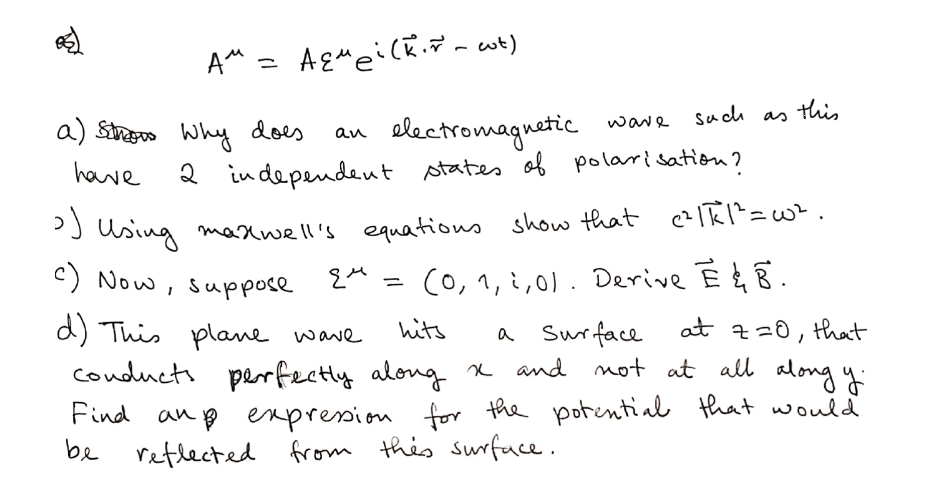 A^μ = A ε^μ e^{i(k⃗·r⃗ - ωt)}
a) Why does an electromagnetic wave such as this
have 2 independent states of polarisation?
b) Using maxwell's equations show that c²|k⃗|² = ω².
c) Now, suppose ε^μ = (0, 1, i, 0). Derive E⃗ & B⃗.
d) This plane wave hits a surface at z=0, that
conducts perfectly along x and not at all along y.
Find an expression for the potential that would
be reflected from this surface.